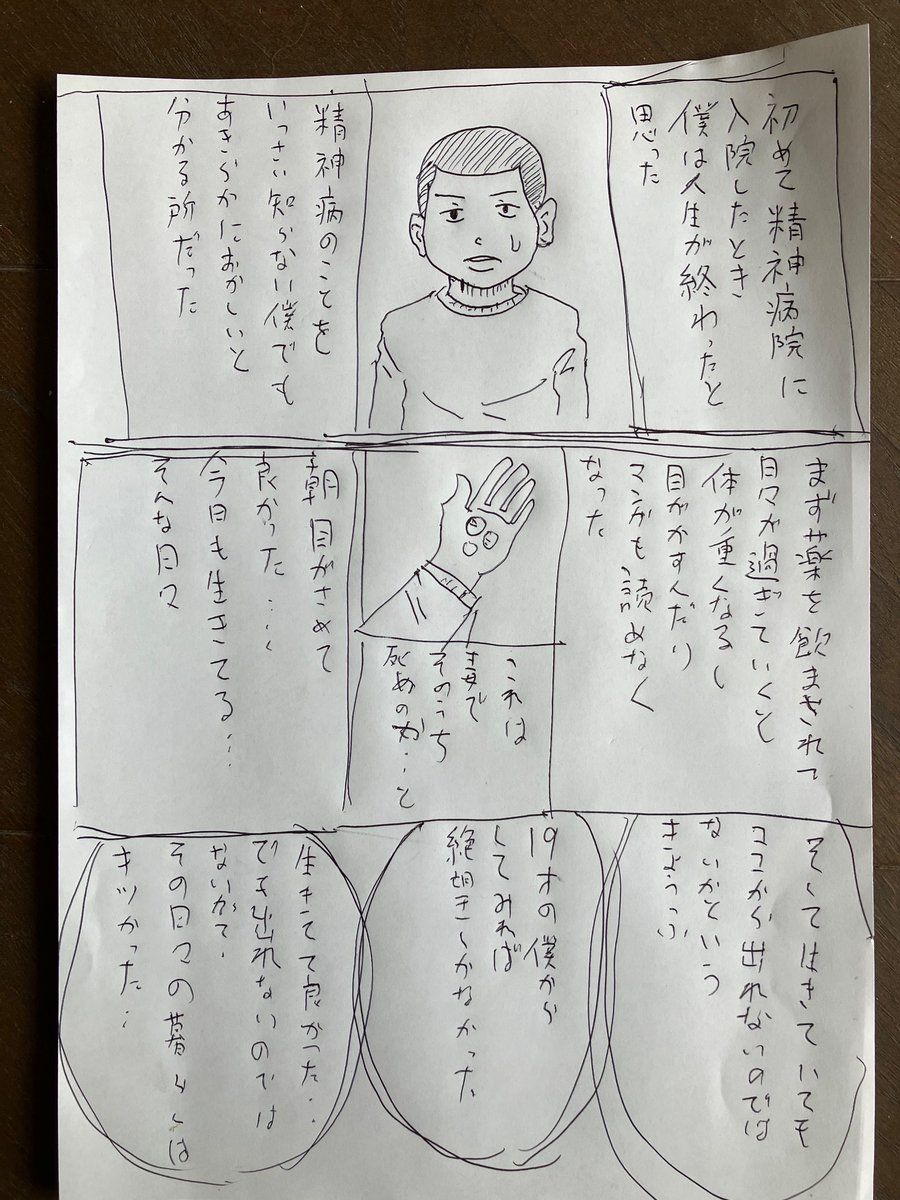 初めて精神病院に
入院したとき
僕は人生が終わったと
思った
精神病のことを
いっさい知らない僕でも
あきらかにおかしいと
分かる所だった
まず薬を飲まされて
日々が過ぎていくと
体が重くなるし
目がかすんだり
マンガも読めなく
なった
これは
毒で
そのうち
死ぬのか…と
朝目がさめて
良かった……
今日も生きてる…
そんな日々
そして生きていても
ココから出れないのでは
ないかという
きょうふ
19才の僕から
してみれば
絶望しかなかった
生きてて良かった…
でも出れないのでは
ないかで、
その日々の暮らしは
キツかった…